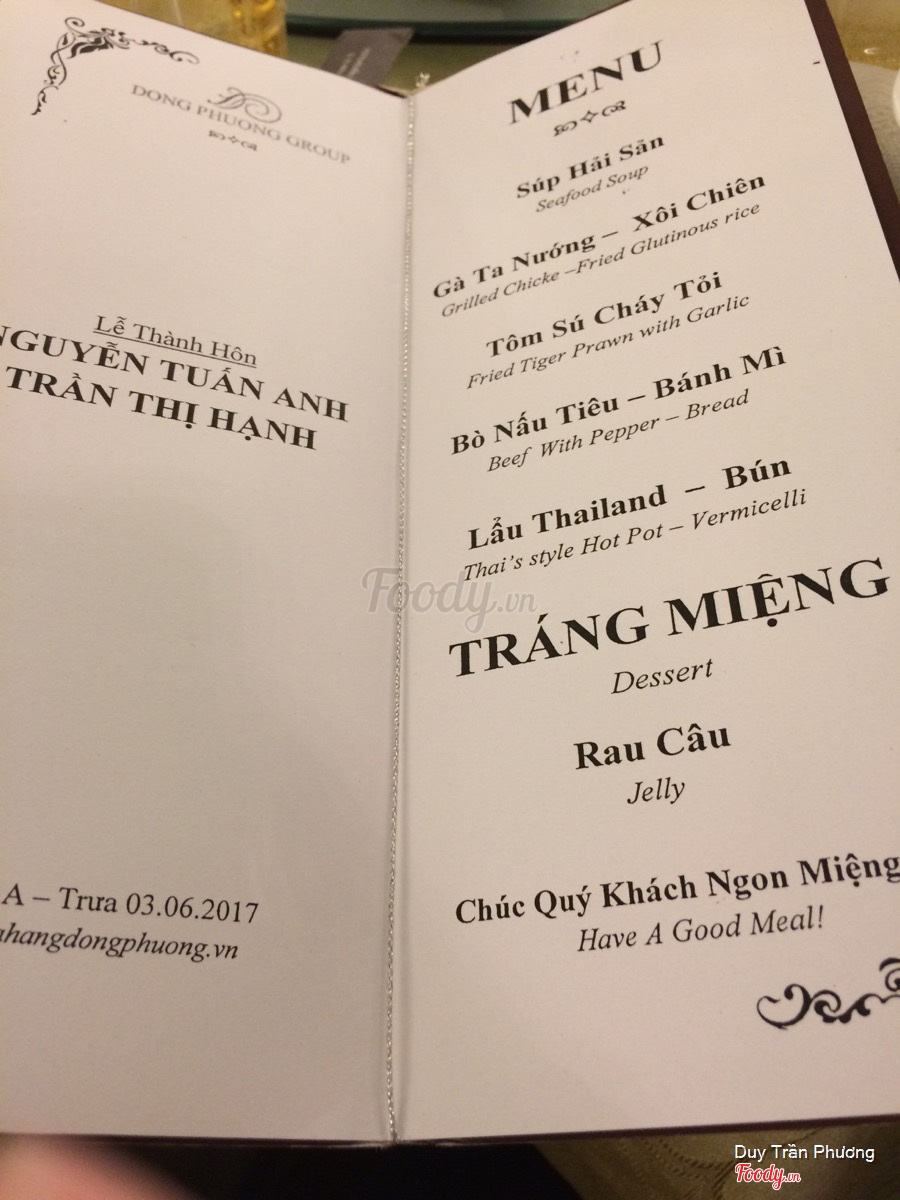 DONG PHUONG GROUP
Lễ Thành Hôn
NGUYỄN TUẤN ANH
TRẦN THỊ HẠNH
A – Trưa 03.06.2017
nhahangdongphuong.vn
MENU
Súp Hải Sản
Seafood Soup
Gà Ta Nướng – Xôi Chiên
Grilled Chicke –Fried Glutinous rice
Tôm Sú Cháy Tỏi
Fried Tiger Prawn with Garlic
Bò Nấu Tiêu – Bánh Mì
Beef With Pepper – Bread
Lẩu Thailand – Bún
Thai's style Hot Pot – Vermicelli
Foody.vn
TRÁNG MIỆNG
Dessert
Rau Câu
Jelly
Chúc Quý Khách Ngon Miệng
Have A Good Meal!
Duy Trần Phương
Foody.vn